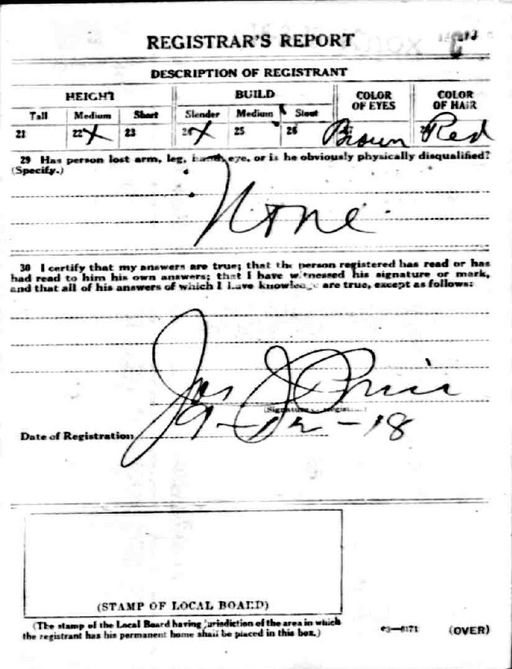 REGISTRAR'S REPORT
DESCRIPTION OF REGISTRANT
HEIGHT BUILD COLOR OF EYES COLOR OF HAIR
Tall Medium Short Slender Medium Stout
21 22 X 23 24 X 25 26 Brown Red
29 Has person lost arm, leg, hand, eye, or is he obviously physically disqualified?
(Specify.)
None
30 I certify that my answers are true; that the person registered has read or has
had read to him his own answers; that I have witnessed his signature or mark,
and that all of his answers of which I have knowledge are true, except as follows:
Jas
Date of Registration 9-12-18
(STAMP OF LOCAL BOARD)
(The stamp of the Local Board having jurisdiction of the area in which
the registrant has his permanent home shall be placed in this box.)
03—6171 (OVER)